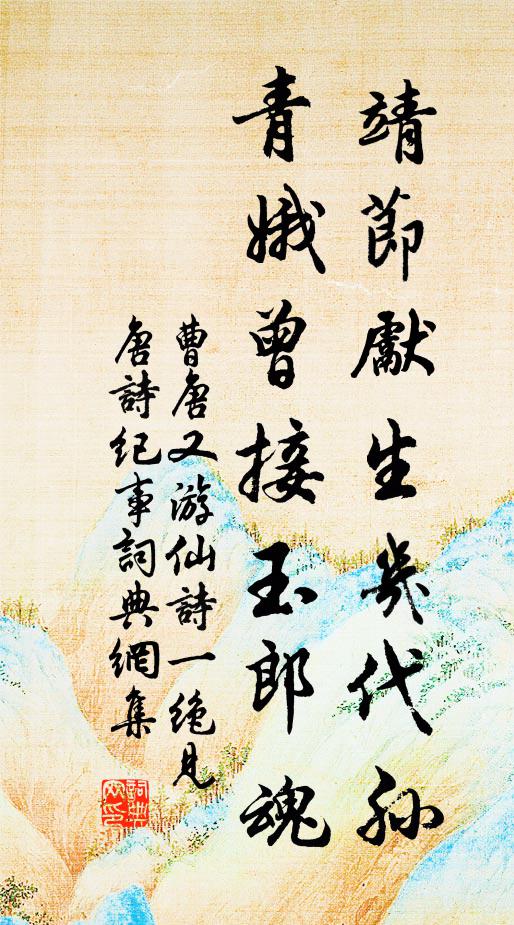 靖節獻生幾代孫
青娥曾接玉郎魂
曹唐又游仙詩一絶見
唐詩纪事詞典網集